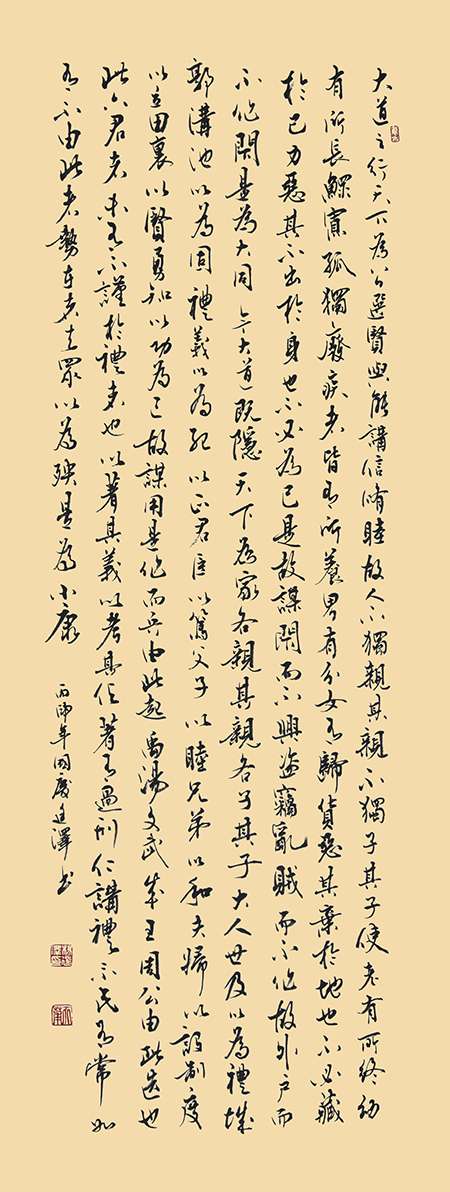 大道之行天下為公選賢與能講信脩睦故人不獨親其親不獨子其子使老有所終幼
有所長鰥寡孤獨廢疾者皆有所養男有分女有歸貨惡其棄於地也不必藏
於己力惡其不出於身也不必為己是故謀閉而不興盜竊亂賊而不作故外戶而
不作閉是為大同今大道既隱天下為家各親其親各子其子大人世及以為禮城
郭溝池以為固禮義以為紀以正君臣以篤父子以睦兄弟以和夫婦以設制度
以立田裏以賢勇知以功為己故謀用是作而兵由此起禹湯文武成王周公由此選也
此六君者未有不謹於禮者也以著其義以考其信著有過刑仁講禮示民有常如
有不由此者勢在者去眾以為殃是為小康
丙年國慶澤書